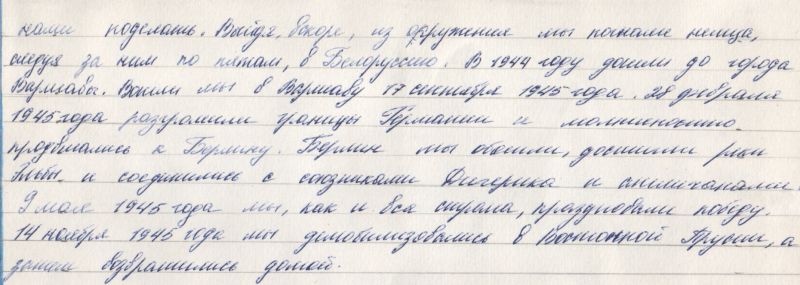 нами поделать. Выйдя, вскоре, из окружения мы погнали немца,
следуя за ним по пятам, в Белоруссию. В 1944 году дошли до города
Варшавы. Вошли мы в Варшаву 17 сентября 1945 года. 28 февраля
1945 года разгромили границы Германии и молниеносно
продвигались к Берлину. Берлин мы обошли, достигли реки
Эльбы и соединились с союзниками и англичанами.
9 мая 1945 года мы, как и вся страна, праздновали победу.
14 ноября 1945 года мы демобилизовались в Восточной Пруссии, а
затем возвратились домой.